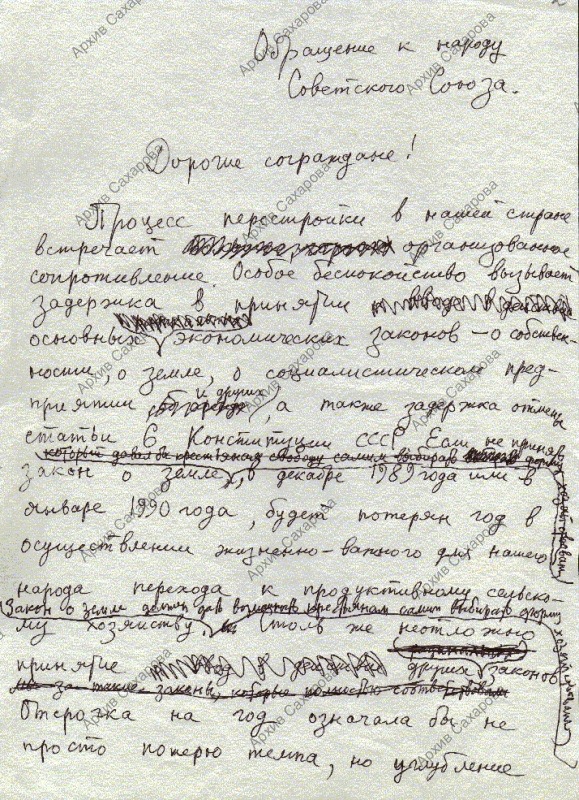 Обращение к народу
Советского Союза.
Дорогие сограждане!
Процесс перестройки в нашей стране
встречает организованное
сопротивление. Особое беспокойство вызывает
задержка в принятии
основных экономических законов – о собствен-
ности, о земле, о социалистическом пред-
приятии и других, а также задержка отмены
статьи 6 Конституции СССР. Если не приняв
который давал бы крестьянам свободу самим выбирать форму
хозяйствования
закон о земле, в декабре 1989 года или в
январе 1990 года, будет потерян год в
осуществлении жизненно-важного для нашего
народа перехода к продуктивному сельско-
Закон о земле должен дать возможность крестьянам самим выбирать форму
хозяйствования
му хозяйству. Столь же неотложно
принятие других законов
Отсрочка на год означала бы не
просто потерю темпа, но углубление
Архив Сахарова